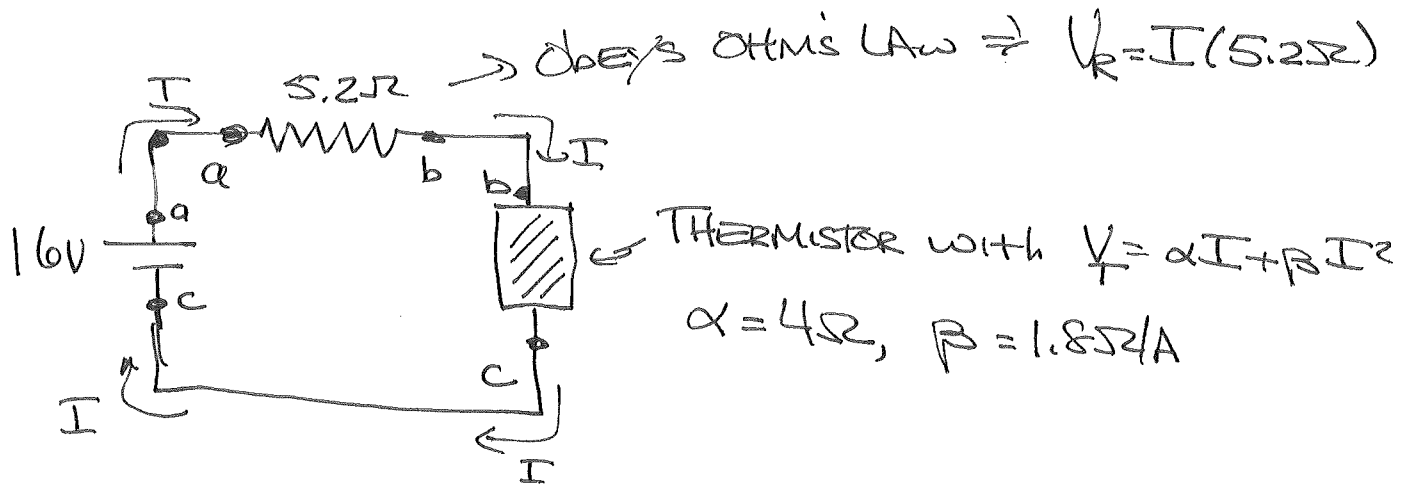 5.2Ω → OBEY'S OHM'S LAW ⇒ V_R = I(5.2Ω)
I
I
a
b
b
a
16V
THERMISTOR WITH V_T = αI + βI²
c
α = 4Ω, β = 1.8Ω/A
c
I
I